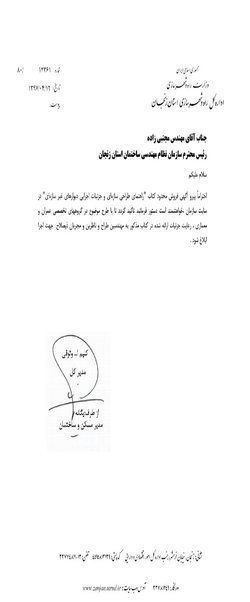 جمهوری اسلامی ایران
وزارت راه و شهرسازی
اداره کل راه و شهرسازی استان زنجان
شماره: ۱۳۳۶۱ /۸۰
تاریخ: ۱۳۹۷/۰۴/۱۲
پیوست:
جناب آقای مهندس مجتبی زاده
رئیس محترم سازمان نظام مهندسی ساختمان استان زنجان
سلام علیکم
احتراماً پیرو آگهی فروش محدود کتاب "راهنمای طراحی سازه‌ای و جزئیات اجرایی دیوارهای غیر سازه‌ای" در
سایت سازمان ،خواهشمند است دستور فرمائید تاکید گردد تا با طرح موضوع در گروههای تخصصی عمران و
معماری ، رعایت جزئیات ارائه شده در کتاب مذکور به مهندسین طراح و ناظرین و مجریان ذیصلاح جهت اجرا
ابلاغ شود .
وثوقی
مدیر کل
از طرف
مدیر مسکن و ساختمان
www.zanjan.mrud.ir